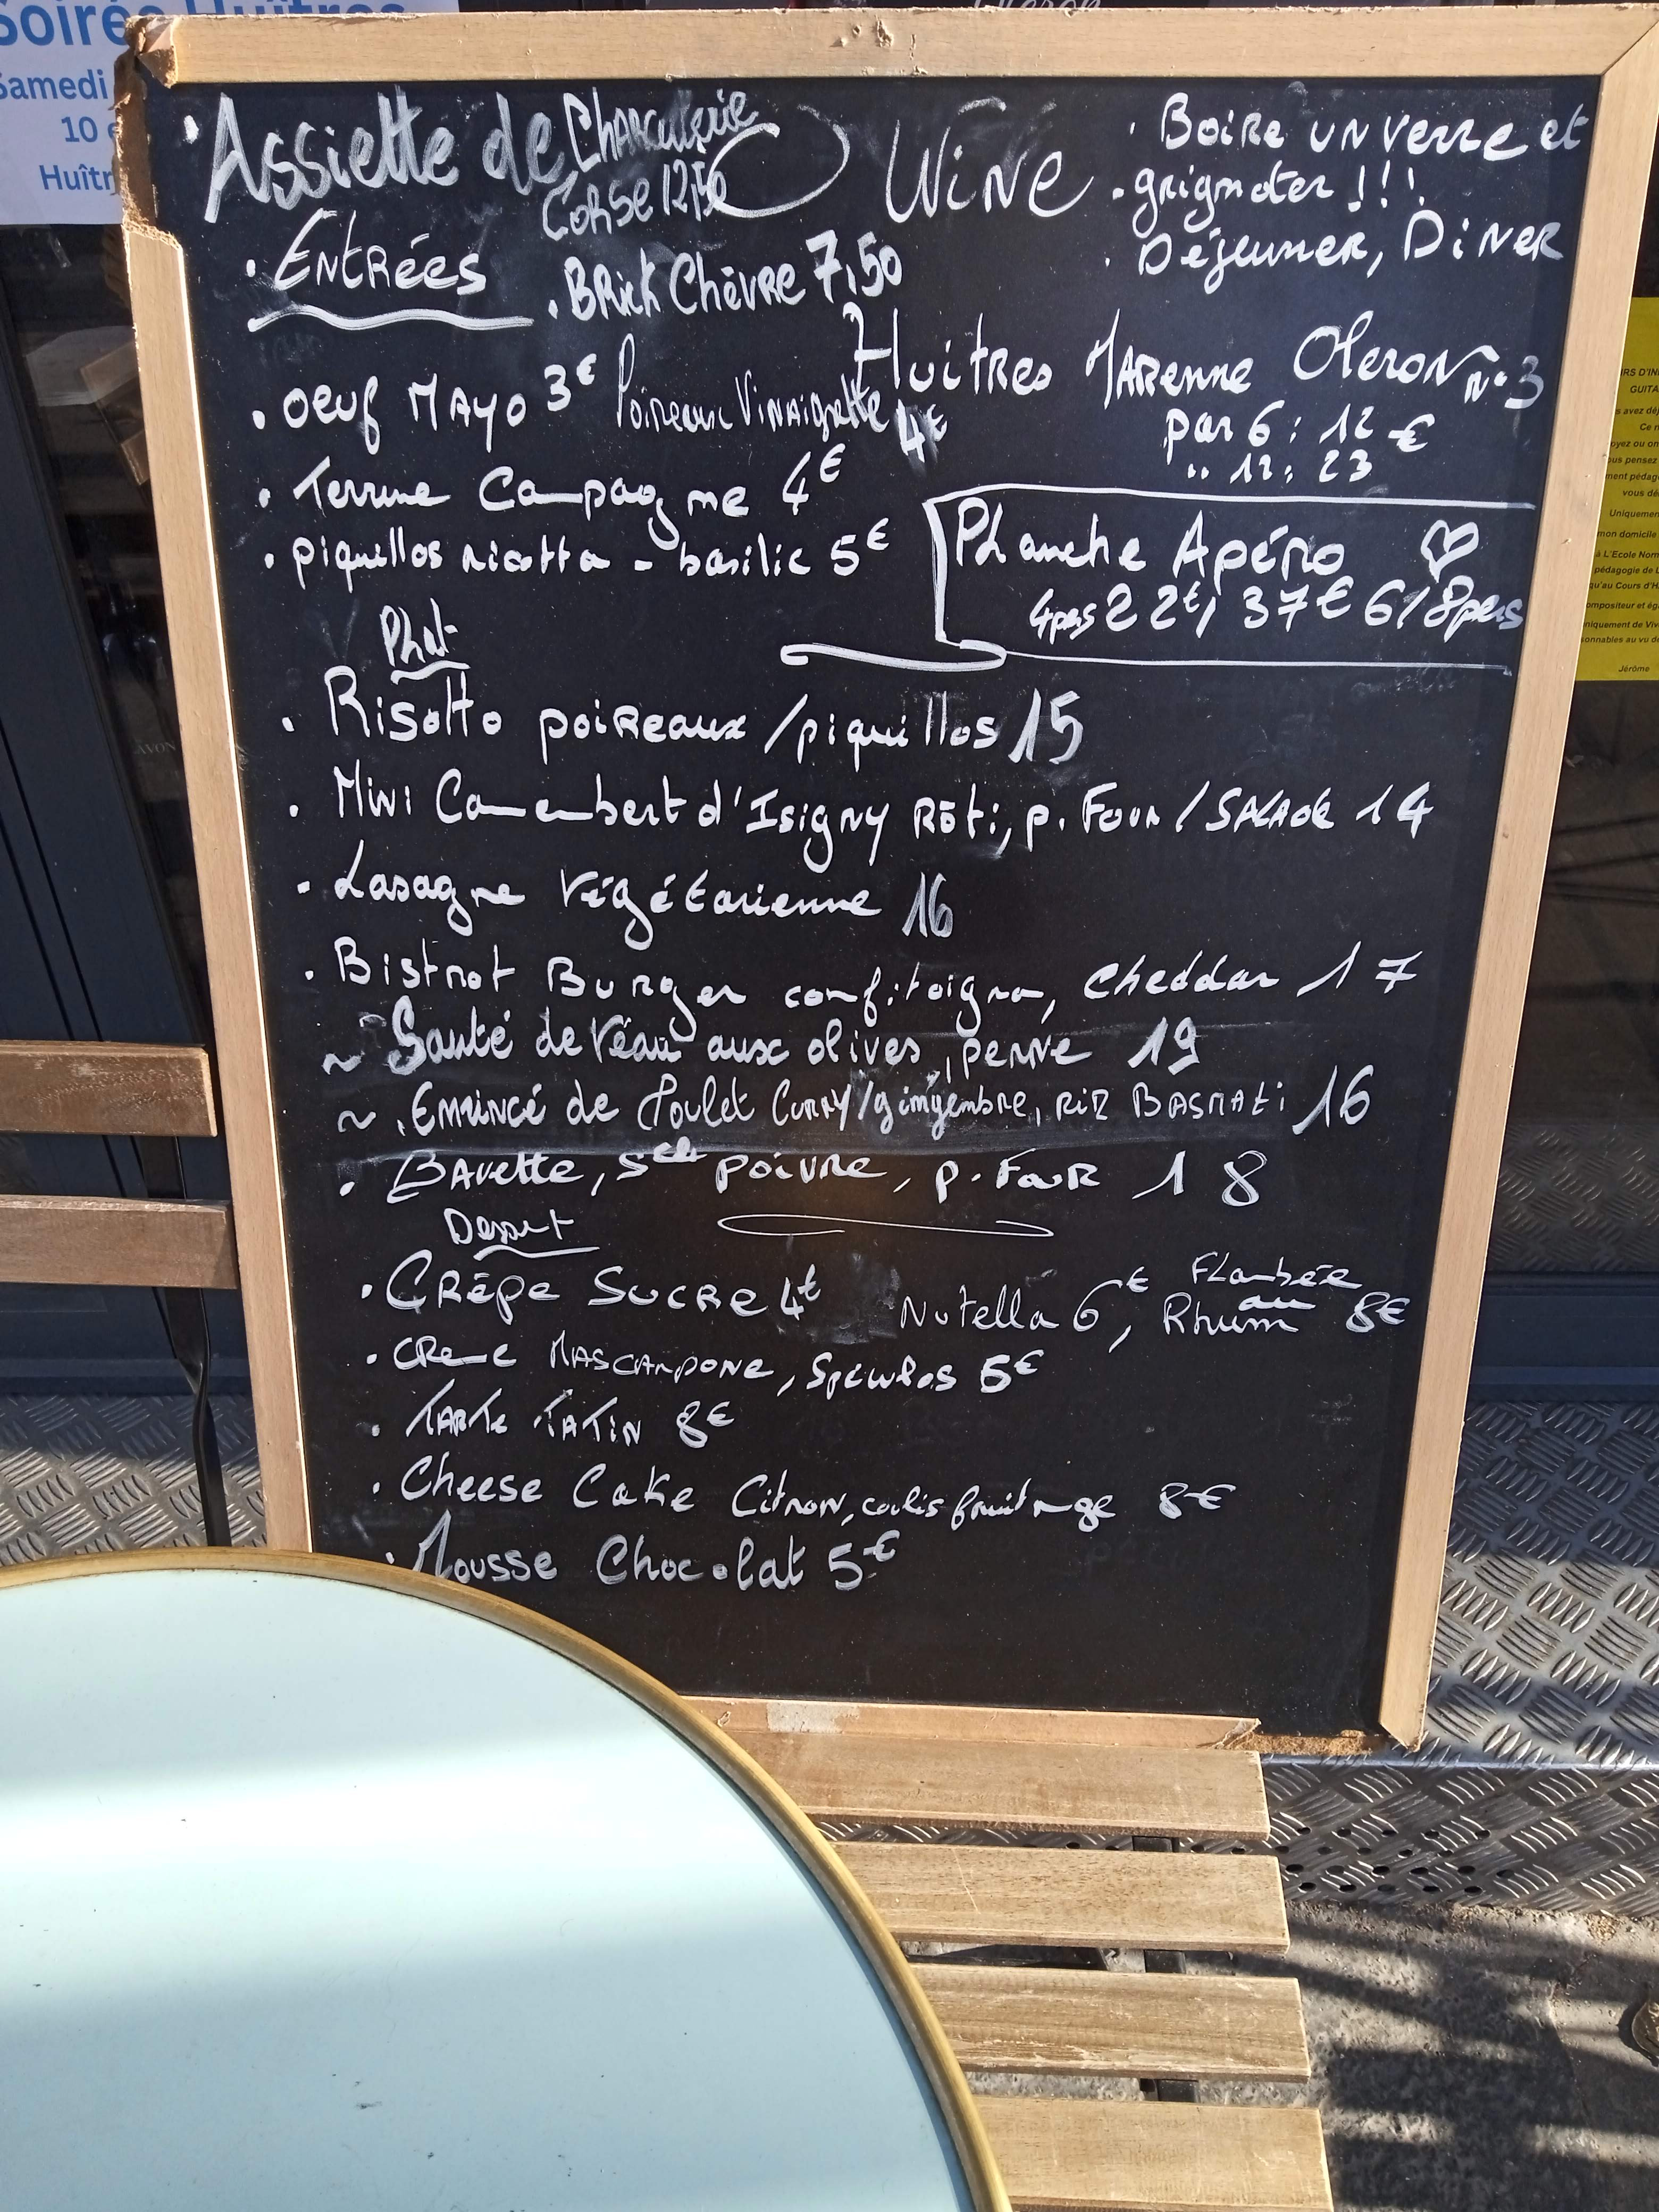 Soirée Huîtres
Samedi
10 e
Huîtr
Assiette de Charcuterie
Corse 12,50
Wine
· Boire un verre et
· grignoter !!!
· Déjeuner, Diner
· Entrées
· Brick Chèvre 7,50
Huitres Marenne Oleron n°3
par 6 : 12 €
" 12 : 23
· oeuf Mayo 3€ Poireaux Vinaigrette 4€
· Terrine Campagne 4€
· piquillos ricotta - basilic 5€
Planche Apéro
4pers 22€, 37€ 6/8pers
Plat
· Risotto poireaux / piquillos 15
· Mini Camembert d'Isigny Rôti, p. Four / Salade 14
· Lasagne Végétarienne 16
· Bistrot Burger confit oignon, Cheddar 17
~ Sauté de Veau aux olives, penne 19
~ . Emincé de Poulet Curry/gingembre, Riz Basmati 16
· Bavette, sce poivre, p. Four 18
Dessert
· Crêpe Sucre 4€ Nutella 6€, Flambée au Rhum 8€
· Creme Mascarpone, Speculos 5€
· Tarte Tatin 8€
· Cheese Cake Citron, coulis fruit rouge 8€
· Mousse Chocolat 5€
GUITA
Ce n
vous dé
Uniquemen
mon domicile
à L'Ecole Nom
pédagogie de L
qu'au Cours d'H
niquement de Viv
sonnables au vu de
Jérôme